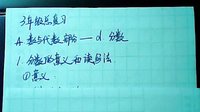 3年级总复习
A 数与代数部分 —— d 分数
1. 分数的意义和读写法
①意义